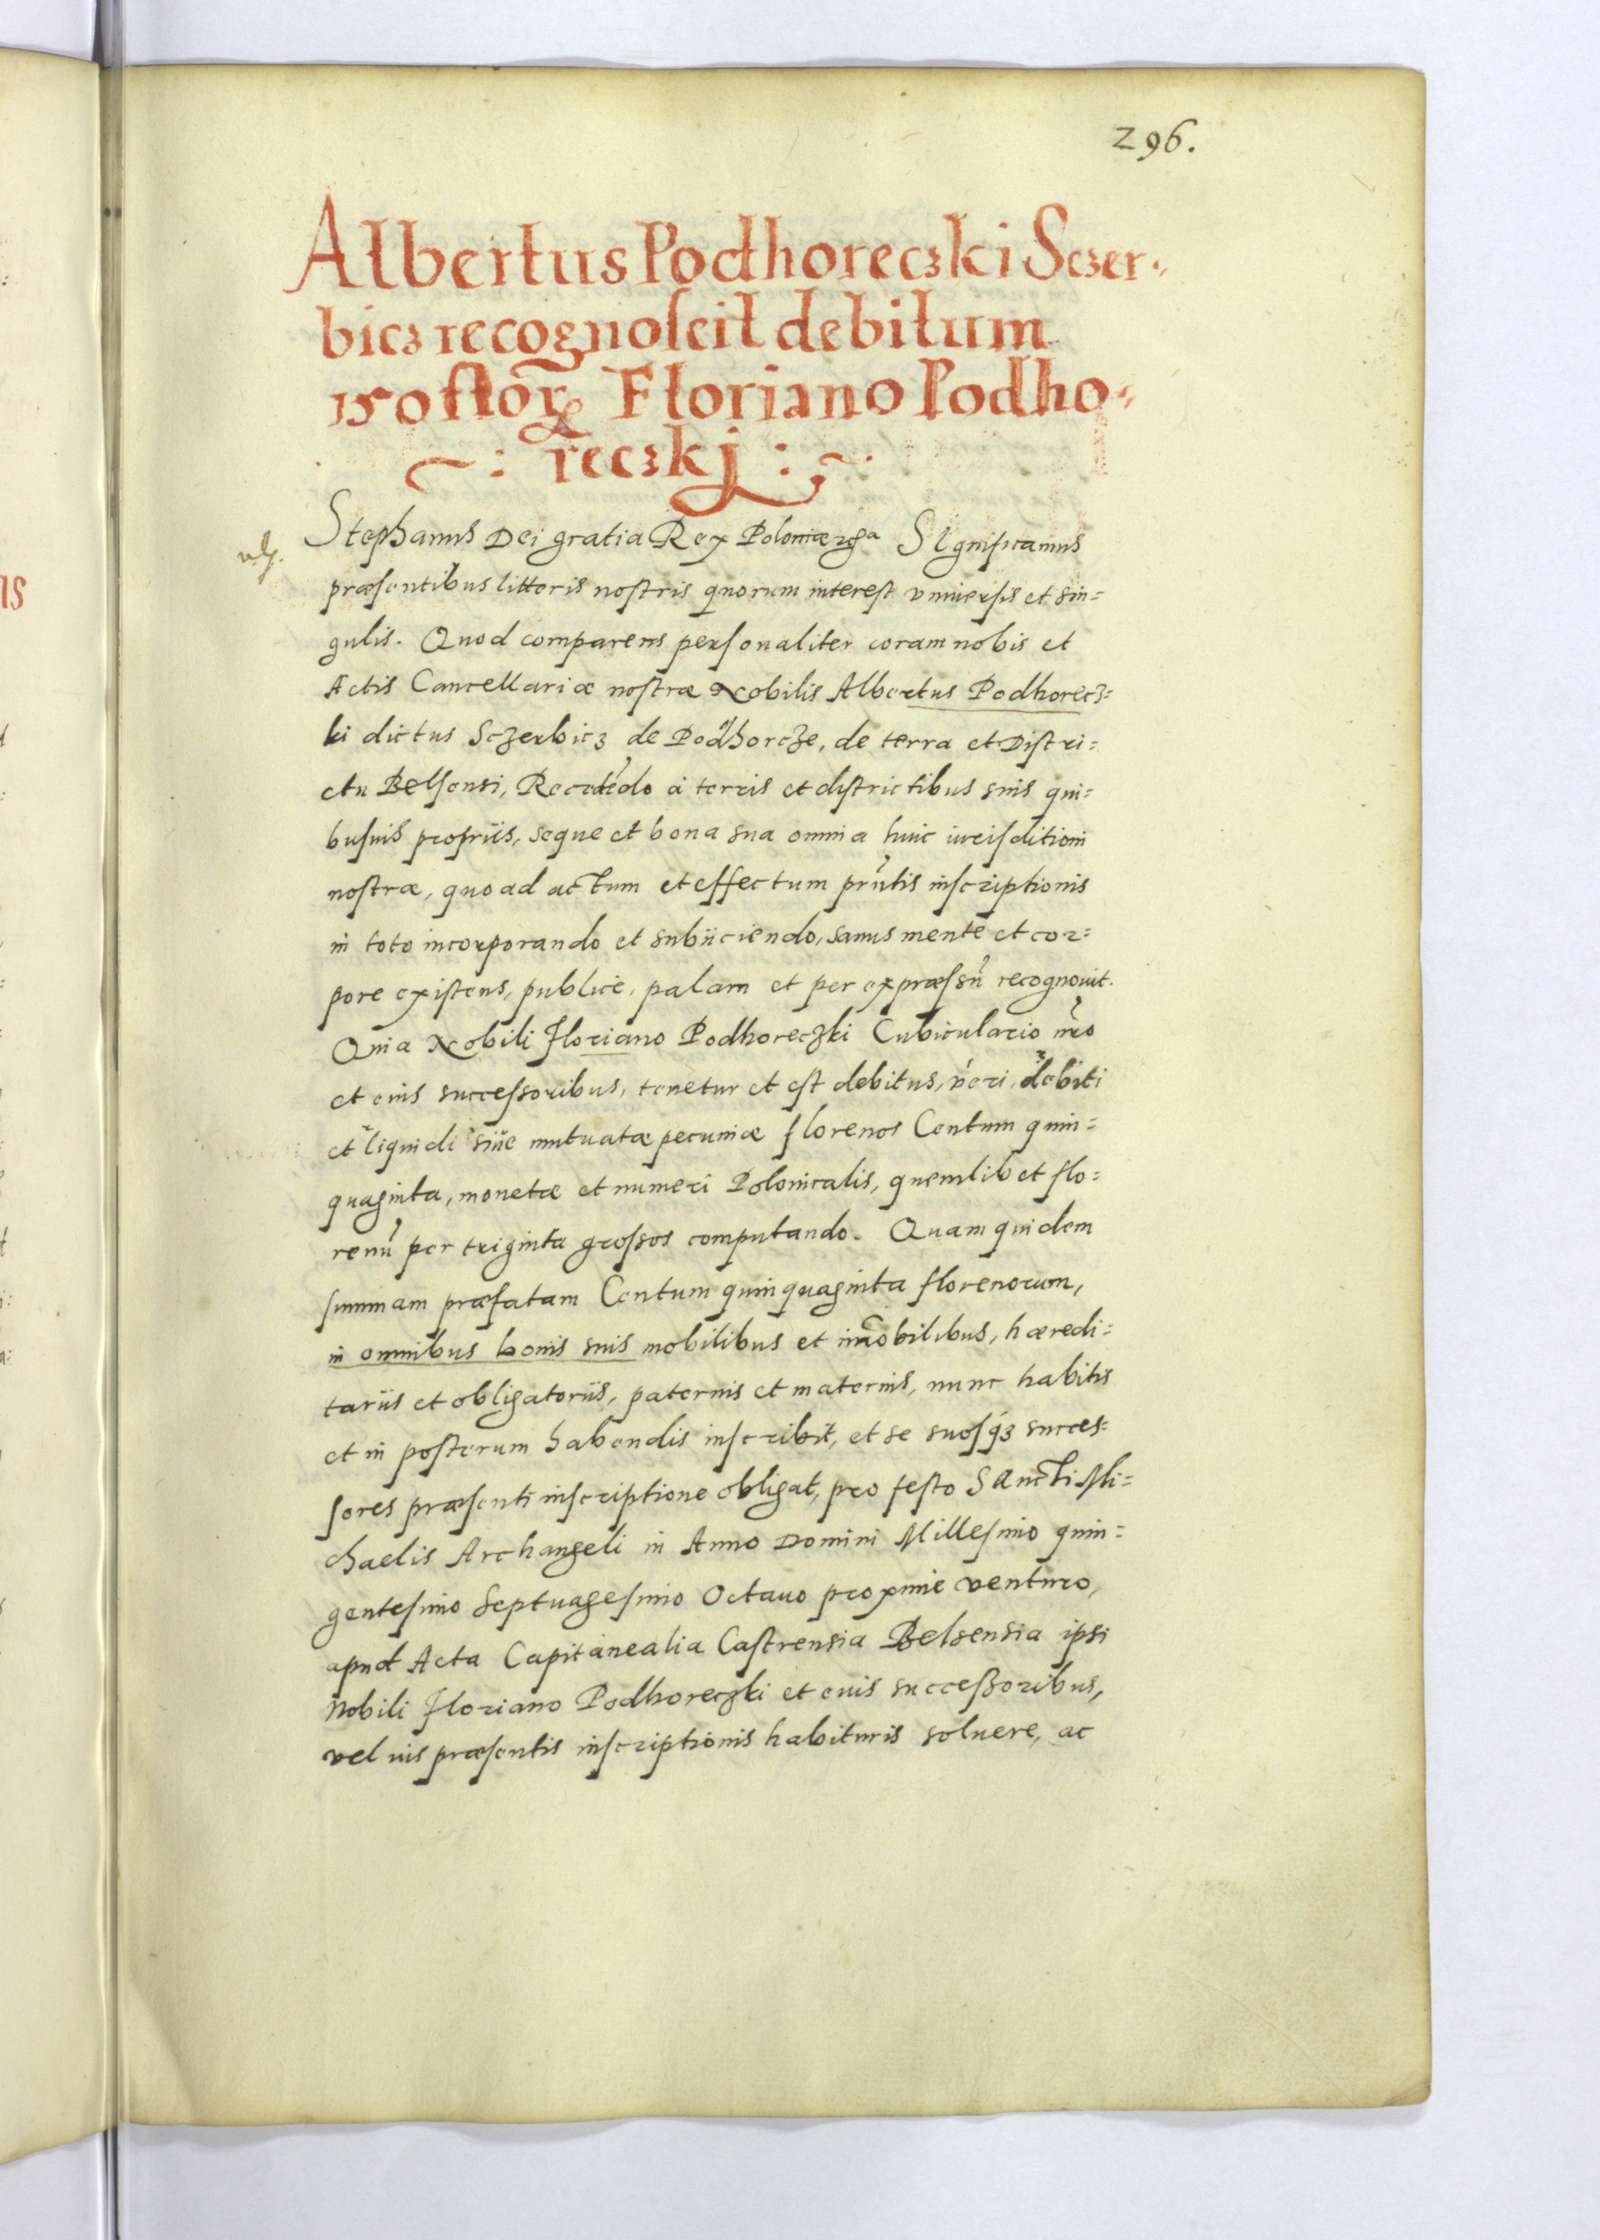 296.
Albertus Podhoreczki Sczer-
bicz recognoscit debitum
150 flor. Floriano Podho-
reczkj
Stephanus Dei gratia Rex Poloniae etca Significamus
præsentibus litteris nostris quorum interest vniuersis et sin=
gulis. Quod comparens personaliter coram nobis et
Actis Cancellariæ nostræ Nobilis Albertus Podhorecz=
ki dictus Sczerbicz de Podhorcze, de terra et Distri=
ctu Belsensi, Recedẽdo à terris et districtibus suis qui=
busuis propriis, seque et bona sua omnia huic iurisditioni
nostræ, quo ad actum et effectum prñtis inscriptionis
in toto incorporando et subiiciendo, sanus mente et cor=
pore existens, publice, palam et per expræssũ recognouit.
Quia Nobili Floriano Podhoreczki Cubiculario nr̃o
et eius successoribus, tenetur et est debitus, veri, debiti
et liquidi siue mutuatæ pecuniæ florenos Centum quin=
quaginta, monetæ et numeri Polonicalis, quemlibet flo=
renũ per triginta grossos computando. Quam quidem
summam præfatam Centum quinquaginta florenorum,
in omnibus bonis suis mobilibus et im̃obilibus, hæredi=
tariis et obligatoriis, paternis et maternis, nunc habitis
et in posterum habendis inscribit, et se suosq3 succes=
sores præsenti inscriptione obligat, pro festo Sancti Mi=
chaelis Archangeli in Anno Domini Millesimo quin=
gentesimo Septuagesimo Octauo proxime venturo,
apud Acta Capitanealia Castrensia Belsensia ipsi
Nobili Floriano Podhoreczki et euis successoribus,
vel ius præsentis inscriptionis habituris soluere, ac